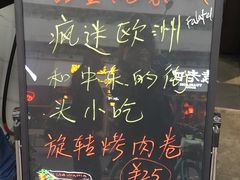 疯迷欧洲
Falafel
和中东的街
头小吃
旋转烤肉卷
¥25